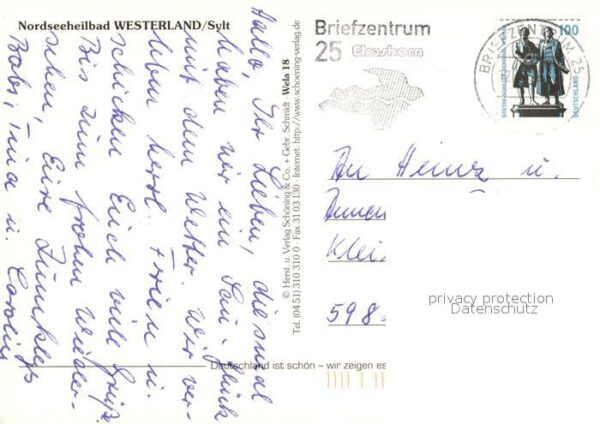 Nordseeheilbad WESTERLAND/Sylt
Hallo, Ihr Lieben, diesmal
haben wir ein Sau-Glück
mit dem Wetter. Wir ver-
leben herrl. Ferien u.
schicken Euch viele Grüße.
Bis zum frohen Wieder-
sehen, Eure
Babs, Tina u. Carolin
© Herst. u. Verlag Schöning & Co. + Gebr. Schmidt · Wela 18
Tel. (04 51) 310 310 0 · Fax 31 03 130 · Internet: http://www.schoening-verlag.de
Briefzentrum
25 Elmshorn
BRIEFZENTRUM 25
100
DEUTSCHLAND
An Heinz u.
Klei
598
privacy protection
Datenschutz
Deutschland ist schön – wir zeigen es